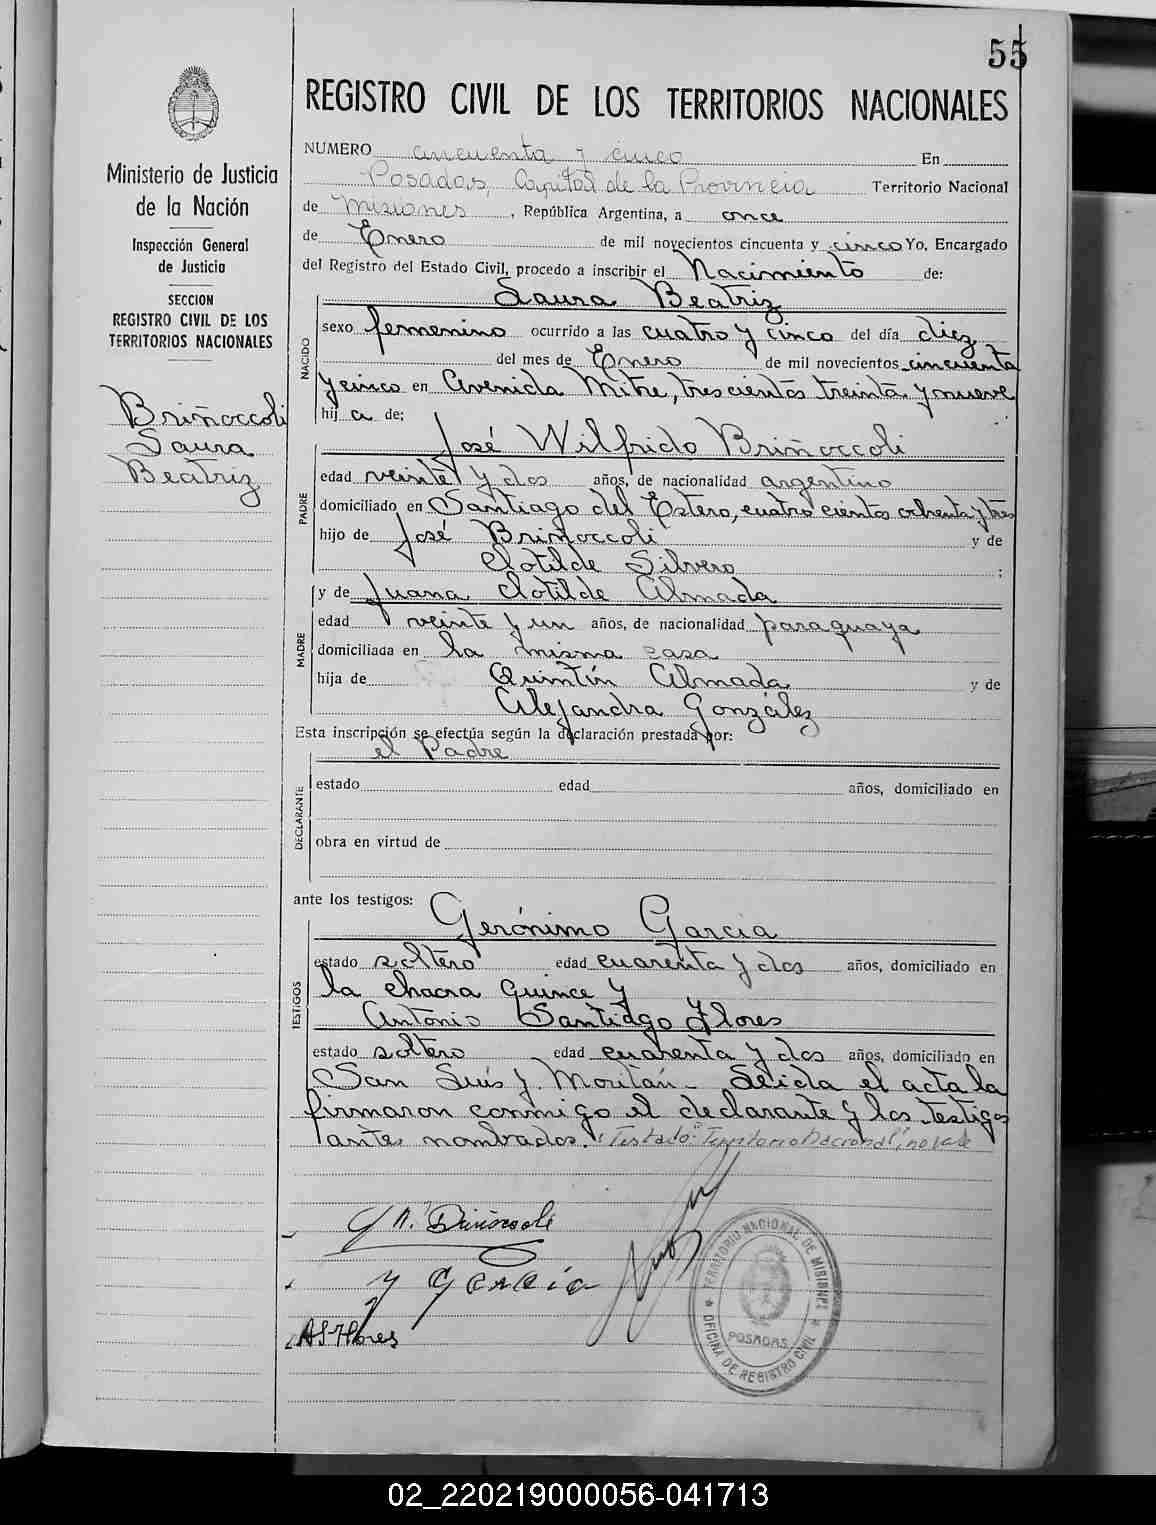 55
REGISTRO CIVIL DE LOS TERRITORIOS NACIONALES
Ministerio de Justicia
de la Nación
Inspección General
de Justicia
SECCION
REGISTRO CIVIL DE LOS
TERRITORIOS NACIONALES
Briñoccoli
Laura
Beatriz
NUMERO cincuenta y cinco En
Posadas, Capital de la Provincia Territorio Nacional
de Misiones, República Argentina, a once
de Enero de mil novecientos cincuenta y cinco Yo, Encargado
del Registro del Estado Civil, procedo a inscribir el Nacimiento de:
NACIDO
Laura Beatriz
sexo femenino ocurrido a las cuatro y cinco del día diez
del mes de Enero de mil novecientos cincuenta
y cinco en Avenida Mitre, trescientos treinta y nueve
hij a de:
PADRE
José Wilfrido Briñoccoli
edad veinte y dos años, de nacionalidad argentino
domiciliado en Santiago del Estero, cuatro cientos ochenta y tres
hijo de José Briñoccoli y de
Clotilde Silvero ;
MADRE
y de Juana Clotilde Almada
edad veinte y un años, de nacionalidad paraguaya
domiciliada en la misma casa
hija de Quintín Almada y de
Alejandra González
Esta inscripción se efectúa según la declaración prestada por:
el Padre
DECLARANTE
estado edad años, domiciliado en
obra en virtud de
ante los testigos:
TESTIGOS
Gerónimo Garcia
estado soltero edad cuarenta y dos años, domiciliado en
la chacra quince y
Antonio Santiago Flores
estado soltero edad cuarenta y dos años, domiciliado en
San Luis y . - Leida el acta la
firmaron conmigo el declarante y los testigos
antes nombrados. Testado: "Territorio Nacional", no vale
y Garcia
AS Flores
TERRITORIO NACIONAL DE MISIONES
POSADAS
OFICINA DE REGISTRO CIVIL
02_220219000056-041713